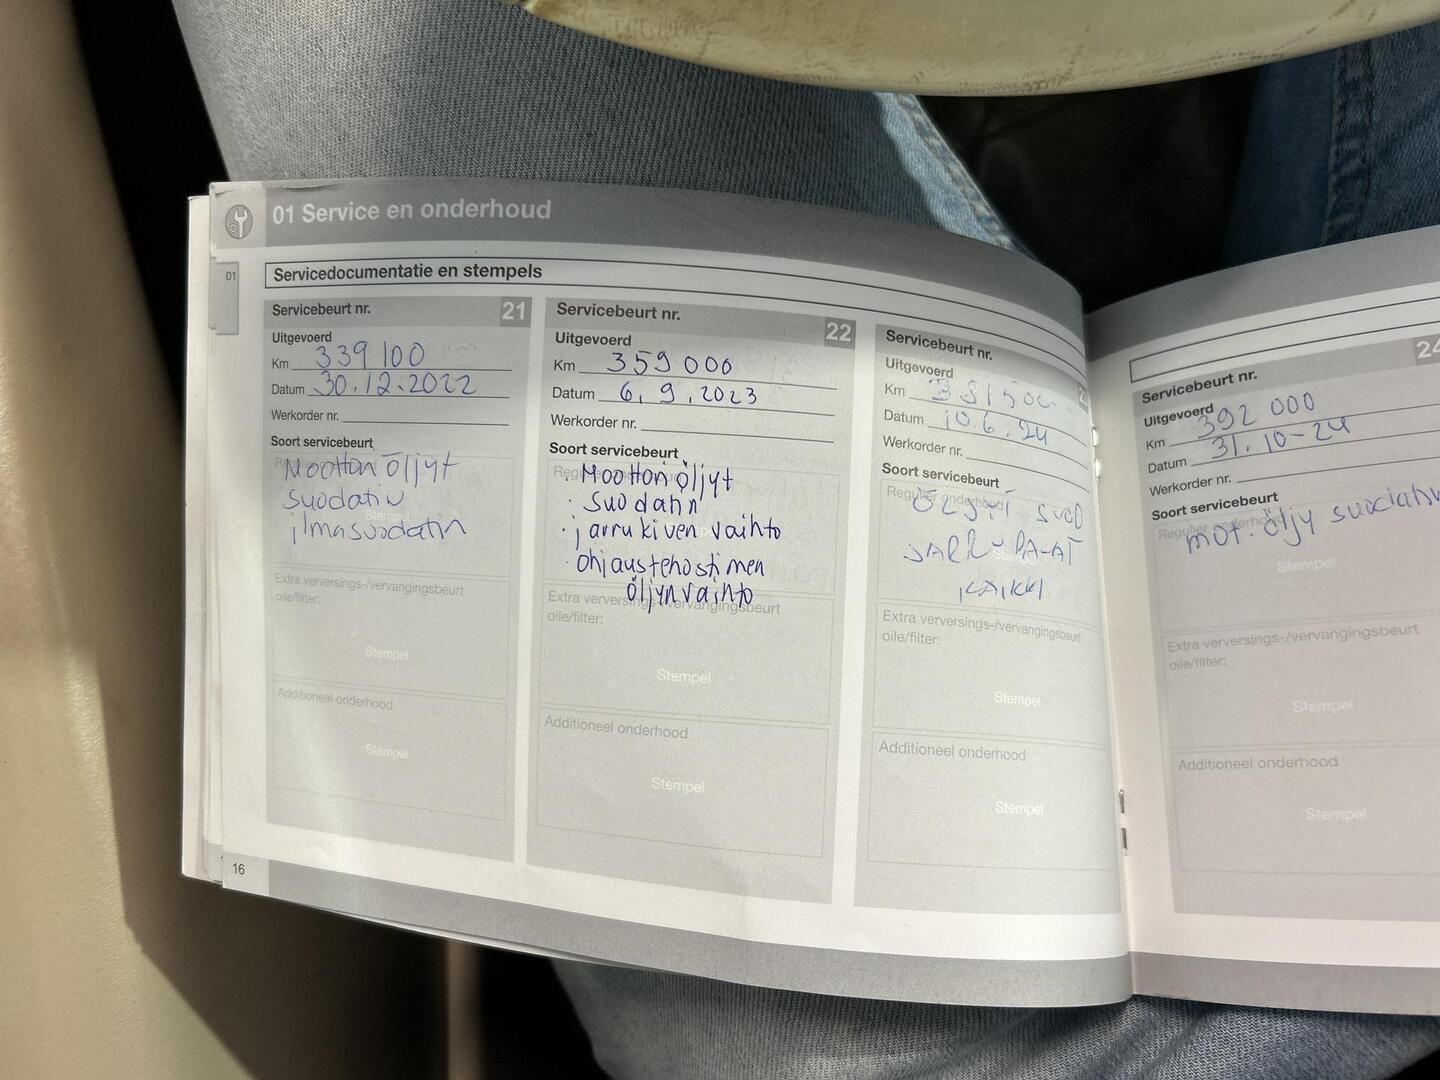 01 Service en onderhoud
01
Servicedocumentatie en stempels
Servicebeurt nr. 21
Uitgevoerd
Km 339 100
Datum 30.12.2022
Werkorder nr.
Soort servicebeurt
Moottoriöljyt
suodatin
ilmasuodatin
Stempel
Extra verversings-/vervangingsbeurt
olie/filter:
Stempel
Additioneel onderhood
Stempel
Servicebeurt nr. 22
Uitgevoerd
Km 359 000
Datum 6.9.2023
Werkorder nr.
Soort servicebeurt
· Moottoriöljyt
· suodatin
· jarrukiven vaihto
· ohjaustehostimen
öljynvaihto
Extra verversings-/vervangingsbeurt
oile/filter:
Stempel
Additioneel onderhood
Stempel
Servicebeurt nr.
Uitgevoerd
Km
Datum 10.6.24
Werkorder nr.
Soort servicebeurt
Regulier onderhoud
SUOD
KAIKKI
Extra verversings-/vervangingsbeurt
oile/filter:
Stempel
Additioneel onderhood
Stempel
Servicebeurt nr. 24
Uitgevoerd
Km 392 000
Datum 31.10-24
Werkorder nr.
Soort servicebeurt
mot. öljy
Stempel
Extra verversings-/vervangingsbeurt
oile/filter:
Stempel
Additioneel onderhood
Stempel
16